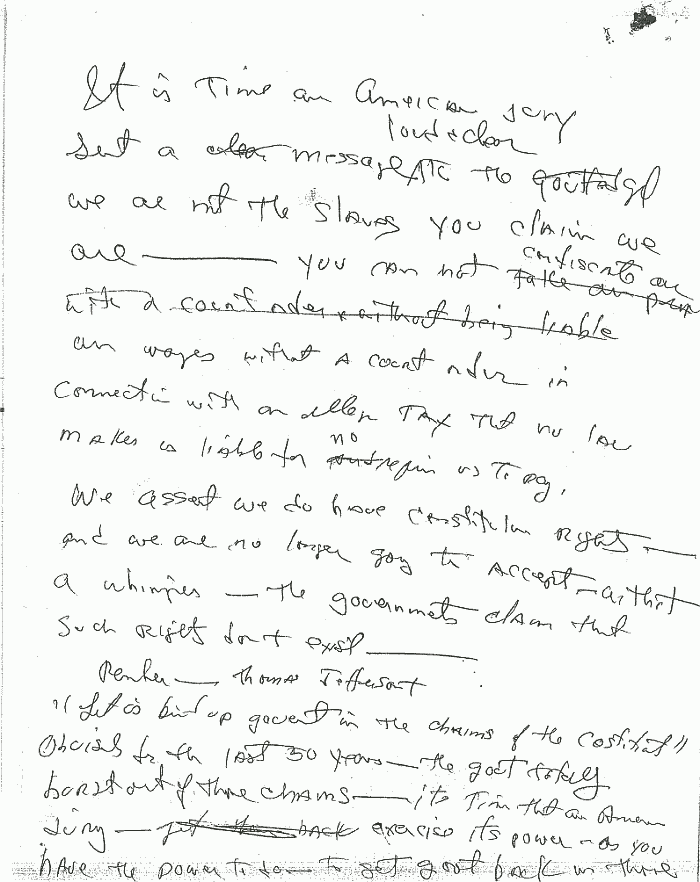 It is Time an American jury
loud & clear
sent a clear message to the gov't
we are not the Slaves you claim we
are — you can not confiscate our
take our prop
with a court order & without being liable
our wages without a court order in
connection with an alleg TAX that no law
makes us liable for no
and requires us to pay.
We assert we do have Constitution Rights —
and we are no longer going to accept — without
a whimper — the governments claim that
such rights don't exist —
Remember — Thomas Jefferson
"Let us bind up government in the chains of the Constitut"
Obviously for the last 50 years — the govt totally
burst out of those chains — its Time that an American
Jury — put them back exercise its power — as you
have the power to do — to get govt back in those